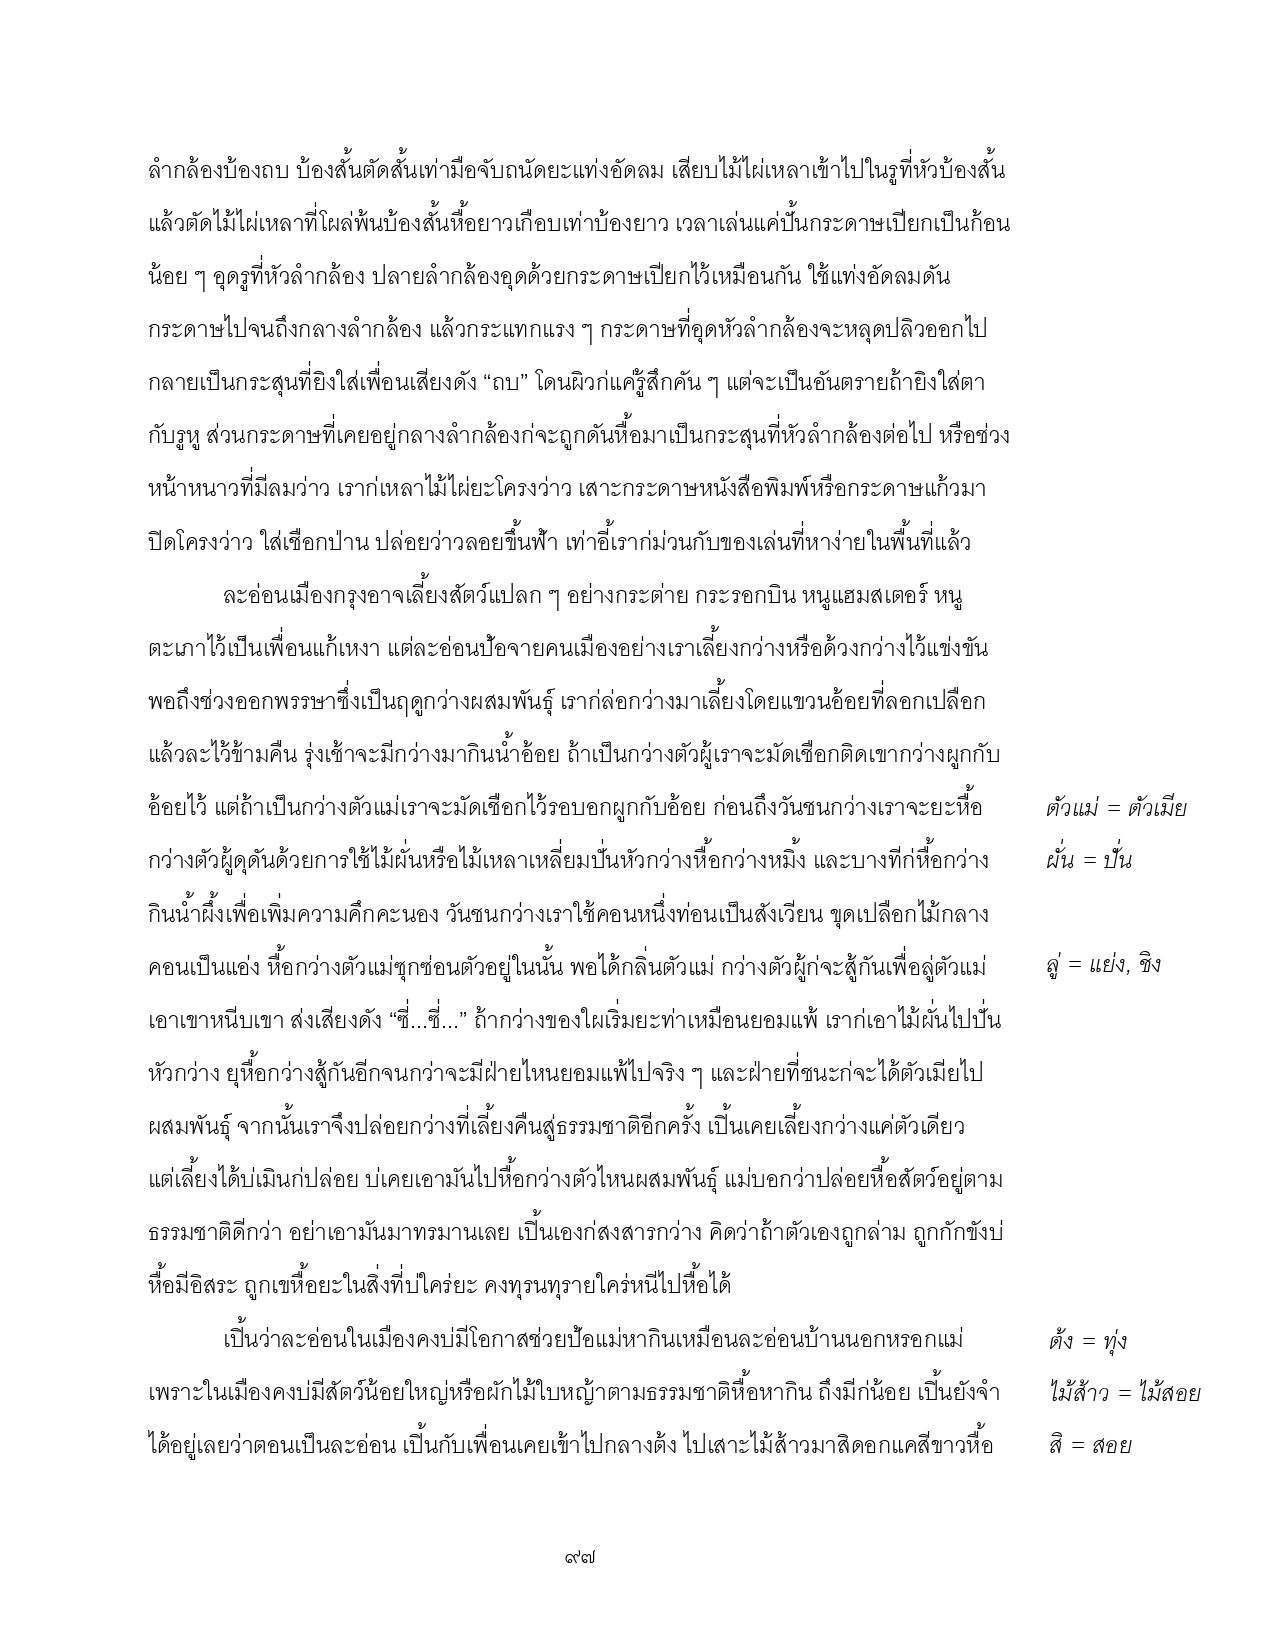 ลำกล้องบ้องถบ บ้องสั้นตัดสั้นเท่ามือจับถนัดยะแท่งอัดลม เสียบไม้ไผ่เหลาเข้าไปในรูที่หัวบ้องสั้น
แล้วตัดไม้ไผ่เหลาที่โผล่พ้นบ้องสั้นหื้อยาวเกือบเท่าบ้องยาว เวลาเล่นแค่ปั้นกระดาษเปียกเป็นก้อน
น้อย ๆ อุดรูที่หัวลำกล้อง ปลายลำกล้องอุดด้วยกระดาษเปียกไว้เหมือนกัน ใช้แท่งอัดลมดัน
กระดาษไปจนถึงกลางลำกล้อง แล้วกระแทกแรง ๆ กระดาษที่อุดหัวลำกล้องจะหลุดปลิวออกไป
กลายเป็นกระสุนที่ยิงใส่เพื่อนเสียงดัง “ถบ” โดนผิวก่แค่รู้สึกคัน ๆ แต่จะเป็นอันตรายถ้ายิงใส่ตา
กับรูหู ส่วนกระดาษที่เคยอยู่กลางลำกล้องก่จะถูกดันหื้อมาเป็นกระสุนที่หัวลำกล้องต่อไป หรือช่วง
หน้าหนาวที่มีลมว่าว เราก่เหลาไม้ไผ่ยะโครงว่าว เสาะกระดาษหนังสือพิมพ์หรือกระดาษแก้วมา
ปิดโครงว่าว ใส่เชือกป่าน ปล่อยว่าวลอยขึ้นฟ้า เท่าอี้เราก่ม่วนกับของเล่นที่หาง่ายในพื้นที่แล้ว
ละอ่อนเมืองกรุงอาจเลี้ยงสัตว์แปลก ๆ อย่างกระต่าย กระรอกบิน หนูแฮมสเตอร์ หนู
ตะเภาไว้เป็นเพื่อนแก้เหงา แต่ละอ่อนป้อจายคนเมืองอย่างเราเลี้ยงกว่างหรือด้วงกว่างไว้แข่งขัน
พอถึงช่วงออกพรรษาซึ่งเป็นฤดูกว่างผสมพันธุ์ เราก่ล่อกว่างมาเลี้ยงโดยแขวนอ้อยที่ลอกเปลือก
แล้วละไว้ข้ามคืน รุ่งเช้าจะมีกว่างมากินน้ำอ้อย ถ้าเป็นกว่างตัวผู้เราจะมัดเชือกติดเขากว่างผูกกับ
อ้อยไว้ แต่ถ้าเป็นกว่างตัวแม่เราจะมัดเชือกไว้รอบอกผูกกับอ้อย ก่อนถึงวันชนกว่างเราจะยะหื้อ
ตัวแม่ = ตัวเมีย
กว่างตัวผู้ดุดันด้วยการใช้ไม้ผั่นหรือไม้เหลาเหลี่ยมปั่นหัวกว่างหื้อกว่างหมิ้ง และบางทีก่หื้อกว่าง
ผั่น = ปั่น
กินน้ำผึ้งเพื่อเพิ่มความคึกคะนอง วันชนกว่างเราใช้คอนหนึ่งท่อนเป็นสังเวียน ขุดเปลือกไม้กลาง
คอนเป็นแอ่ง หื้อกว่างตัวแม่ซุกซ่อนตัวอยู่ในนั้น พอได้กลิ่นตัวแม่ กว่างตัวผู้ก่จะสู้กันเพื่อลู่ตัวแม่
ลู่ = แย่ง, ชิง
เอาเขาหนีบเขา ส่งเสียงดัง “ซี่...ซี่...” ถ้ากว่างของใผเริ่มยะท่าเหมือนยอมแพ้ เราก่เอาไม้ผั่นไปปั่น
หัวกว่าง ยุหื้อกว่างสู้กันอีกจนกว่าจะมีฝ่ายไหนยอมแพ้ไปจริง ๆ และฝ่ายที่ชนะก่จะได้ตัวเมียไป
ผสมพันธุ์ จากนั้นเราจึงปล่อยกว่างที่เลี้ยงคืนสู่ธรรมชาติอีกครั้ง เปิ้นเคยเลี้ยงกว่างแค่ตัวเดียว
แต่เลี้ยงได้บ่เมินก่ปล่อย บ่เคยเอามันไปหื้อกว่างตัวไหนผสมพันธุ์ แม่บอกว่าปล่อยหื้อสัตว์อยู่ตาม
ธรรมชาติดีกว่า อย่าเอามันมาทรมานเลย เปิ้นเองก่สงสารกว่าง คิดว่าถ้าตัวเองถูกล่าม ถูกกักขังบ่
หื้อมีอิสระ ถูกเขหื้อยะในสิ่งที่บ่ใคร่ยะ คงทุรนทุรายใคร่หนีไปหื้อได้
เปิ้นว่าละอ่อนในเมืองคงบ่มีโอกาสช่วยป้อแม่หากินเหมือนละอ่อนบ้านนอกหรอกแม่
ต้ง = ทุ่ง
เพราะในเมืองคงบ่มีสัตว์น้อยใหญ่หรือผักไม้ใบหญ้าตามธรรมชาติหื้อหากิน ถึงมีก่น้อย เปิ้นยังจำ
ไม้ส้าว = ไม้สอย
ได้อยู่เลยว่าตอนเป็นละอ่อน เปิ้นกับเพื่อนเคยเข้าไปกลางต้ง ไปเสาะไม้ส้าวมาสิดอกแคสีขาวหื้อ
สิ = สอย
๙๗